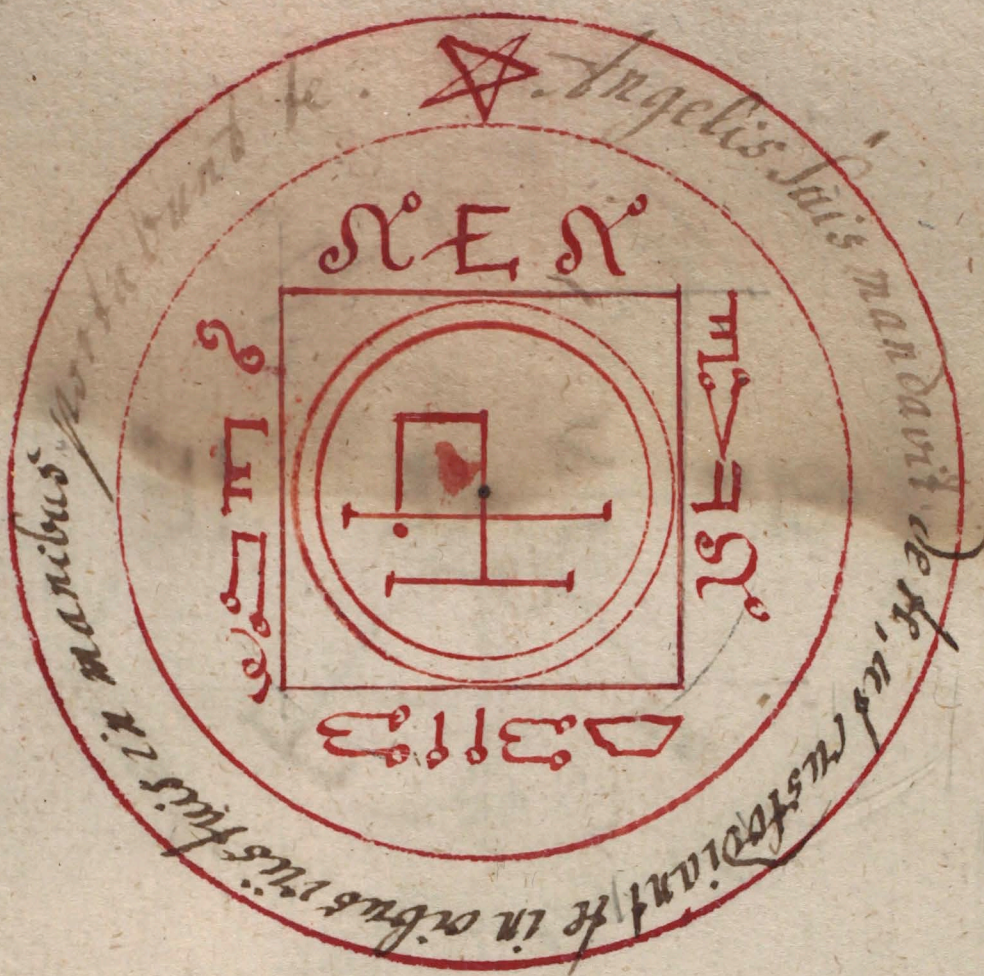 Angelis suis mandavit de te, ut custodiant te in oibus viis tuis in manibus portabunt te.